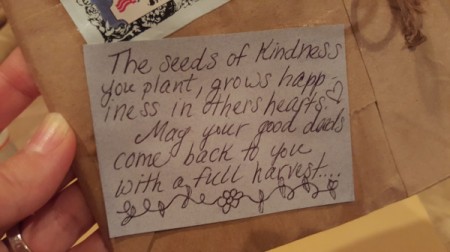 The seeds of Kindness
you plant, grows happ-
iness in others hearts.♡
May your good deeds
come back to you
with a full harvest....